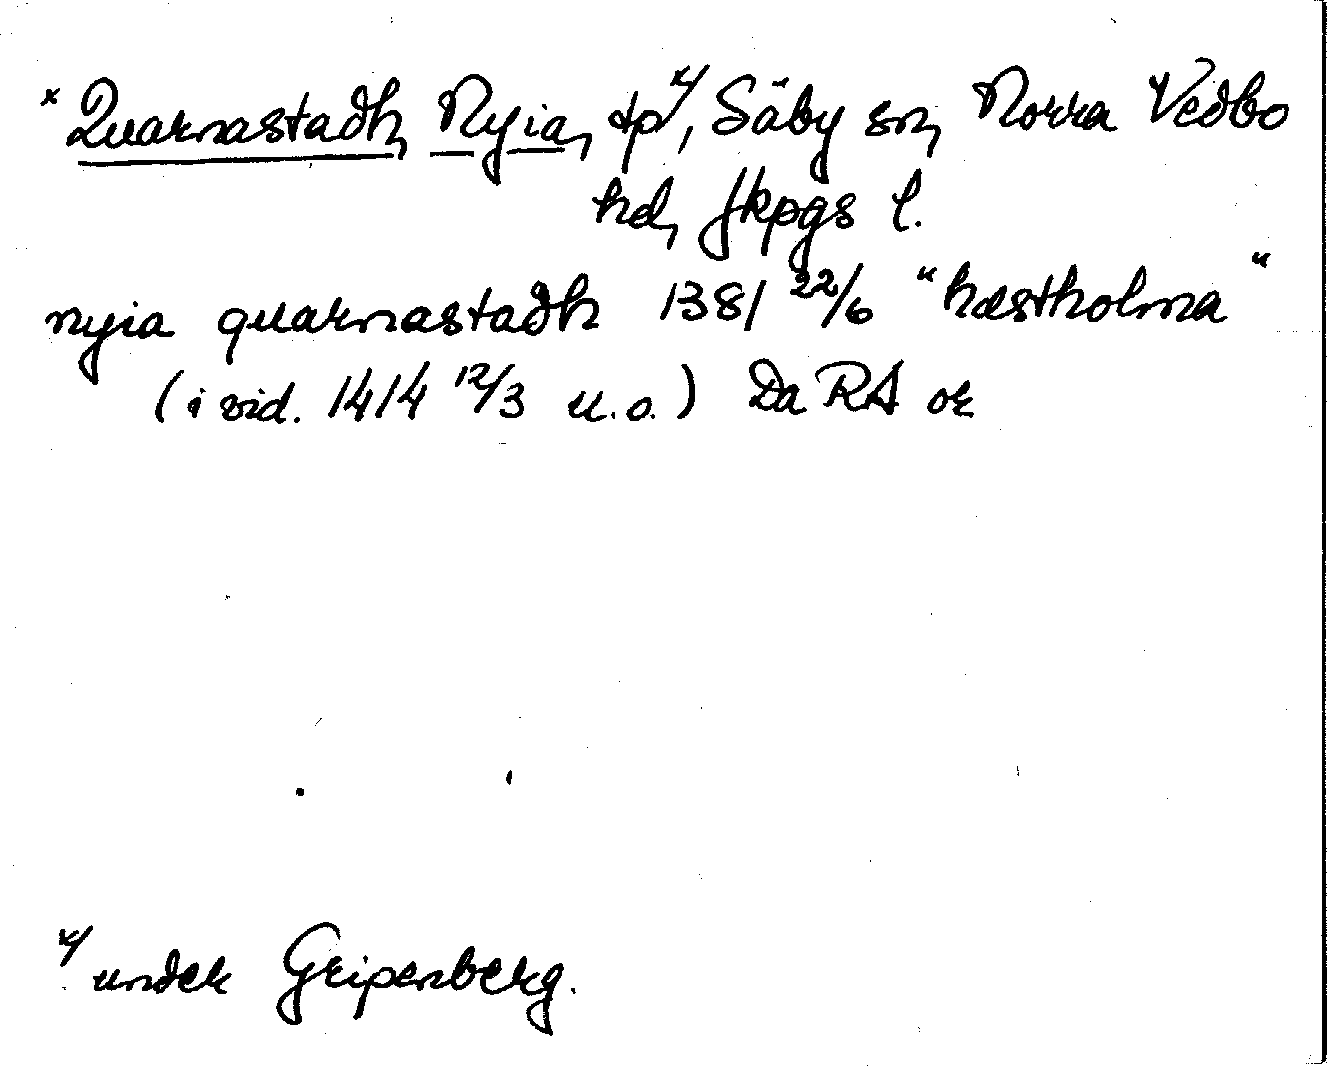 x Quarnastadh, Nyia, tp x/, Säby sn, Norra Vedbo
hd, Jkpgs l.
nyia quarnastadh 1381 22/6 "hæstholma"
(i vid. 1414 12/3 u.o.) Da RA or
x/ under Gripenberg.